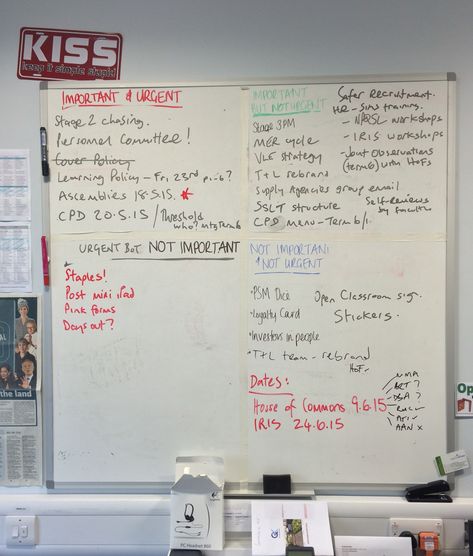 KISS
keep it simple stupid
IMPORTANT & URGENT
Stage 2 chasing.
Personnel Committee!
Cover Policy
Learning Policy - Fri 23rd
Assemblies 18.5.15 *
CPD 20.5.15 / Threshold
who? mtg Term 6
IMPORTANT
BUT NOT URGENT
Stage 3 PM
MER cycle
VLE strategy
T+L rebrand
Supply Agencies group email
SSLT structure
CPD menu - Term 6/1
Safer Recruitment.
HR - Sims training.
- workshops
- IRIS workshops
- Joint Observations
(term 6) with HoFs
Self-Reviews
by faculties
URGENT BUT NOT IMPORTANT
Staples!
Post mini iPad
Pink forms
Days out?
NOT IMPORTANT
& NOT URGENT
• PSM Dice
• Loyalty Card
• Investors in people
• T+L team - rebrand
HoF ✓
Open Classroom sign.
Stickers.
Dates:
House of Commons 9.6.15
IRIS 24.6.15
NMA
ART ?
DSA ?
AAN x
the land
Op
PC Headset 960